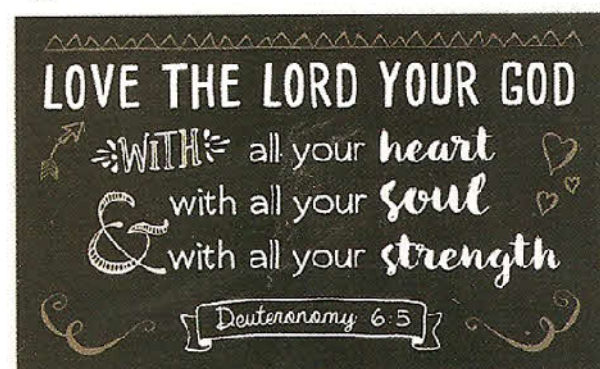 LOVE THE LORD YOUR GOD
WITH all your heart
with all your soul
& with all your strength
Deuteronomy 6:5